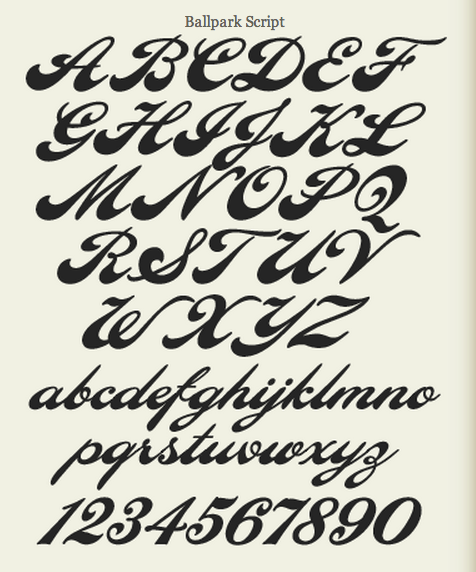 Ballpark Script
ABCDEF
GHIJKL
MNOPQ
RSTUV
WXYZ
abcdefghijklmno
pqrstuvwxyz
1234567890